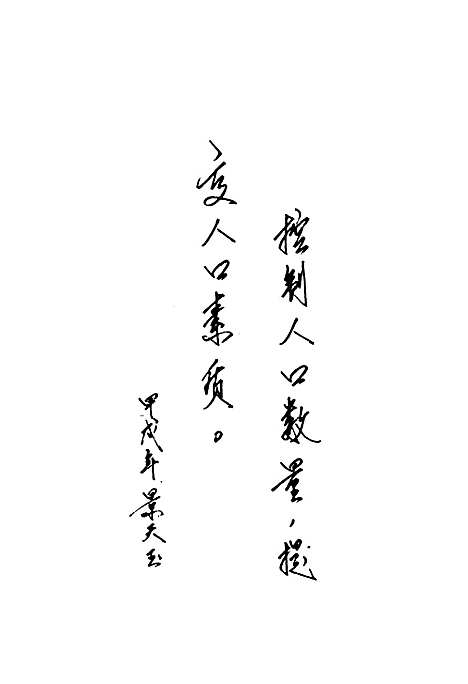 控制人口数量，提
高人口素质。
甲戌年景天玉